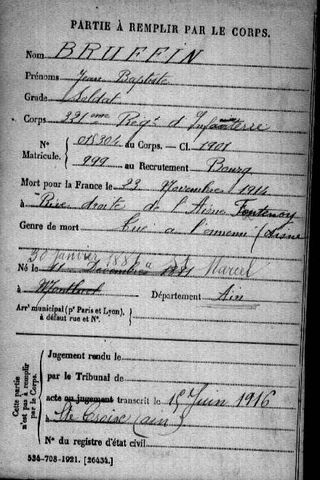 PARTIE À REMPLIR PAR LE CORPS.
Nom BRUFFIN
Prénoms Jean Baptiste
Grade Soldat
Corps 221eme Regt d'Infanterie
N° Matricule. 018304 au Corps. — Cl. 1901
999 au Recrutement Bourg
Mort pour la France le 23 Novembre 1914
à Rive droite de l'Aisne Fontenoy
Genre de mort Tué à l'ennemi (Aisne
30 Janvier 1881 à St Marcel
Né le 11 Décembre 1881
à Département Ain
Arrt municipal (pr Paris et Lyon),
à défaut rue et N°.
Cette partie
n'est pas à remplir
par le Corps.
Jugement rendu le
par le Tribunal de
acte ou jugement transcrit le 15 Juin 1916
à Ste Croix (Ain)
N° du registre d'état civil
534-708-1921. [26434.]